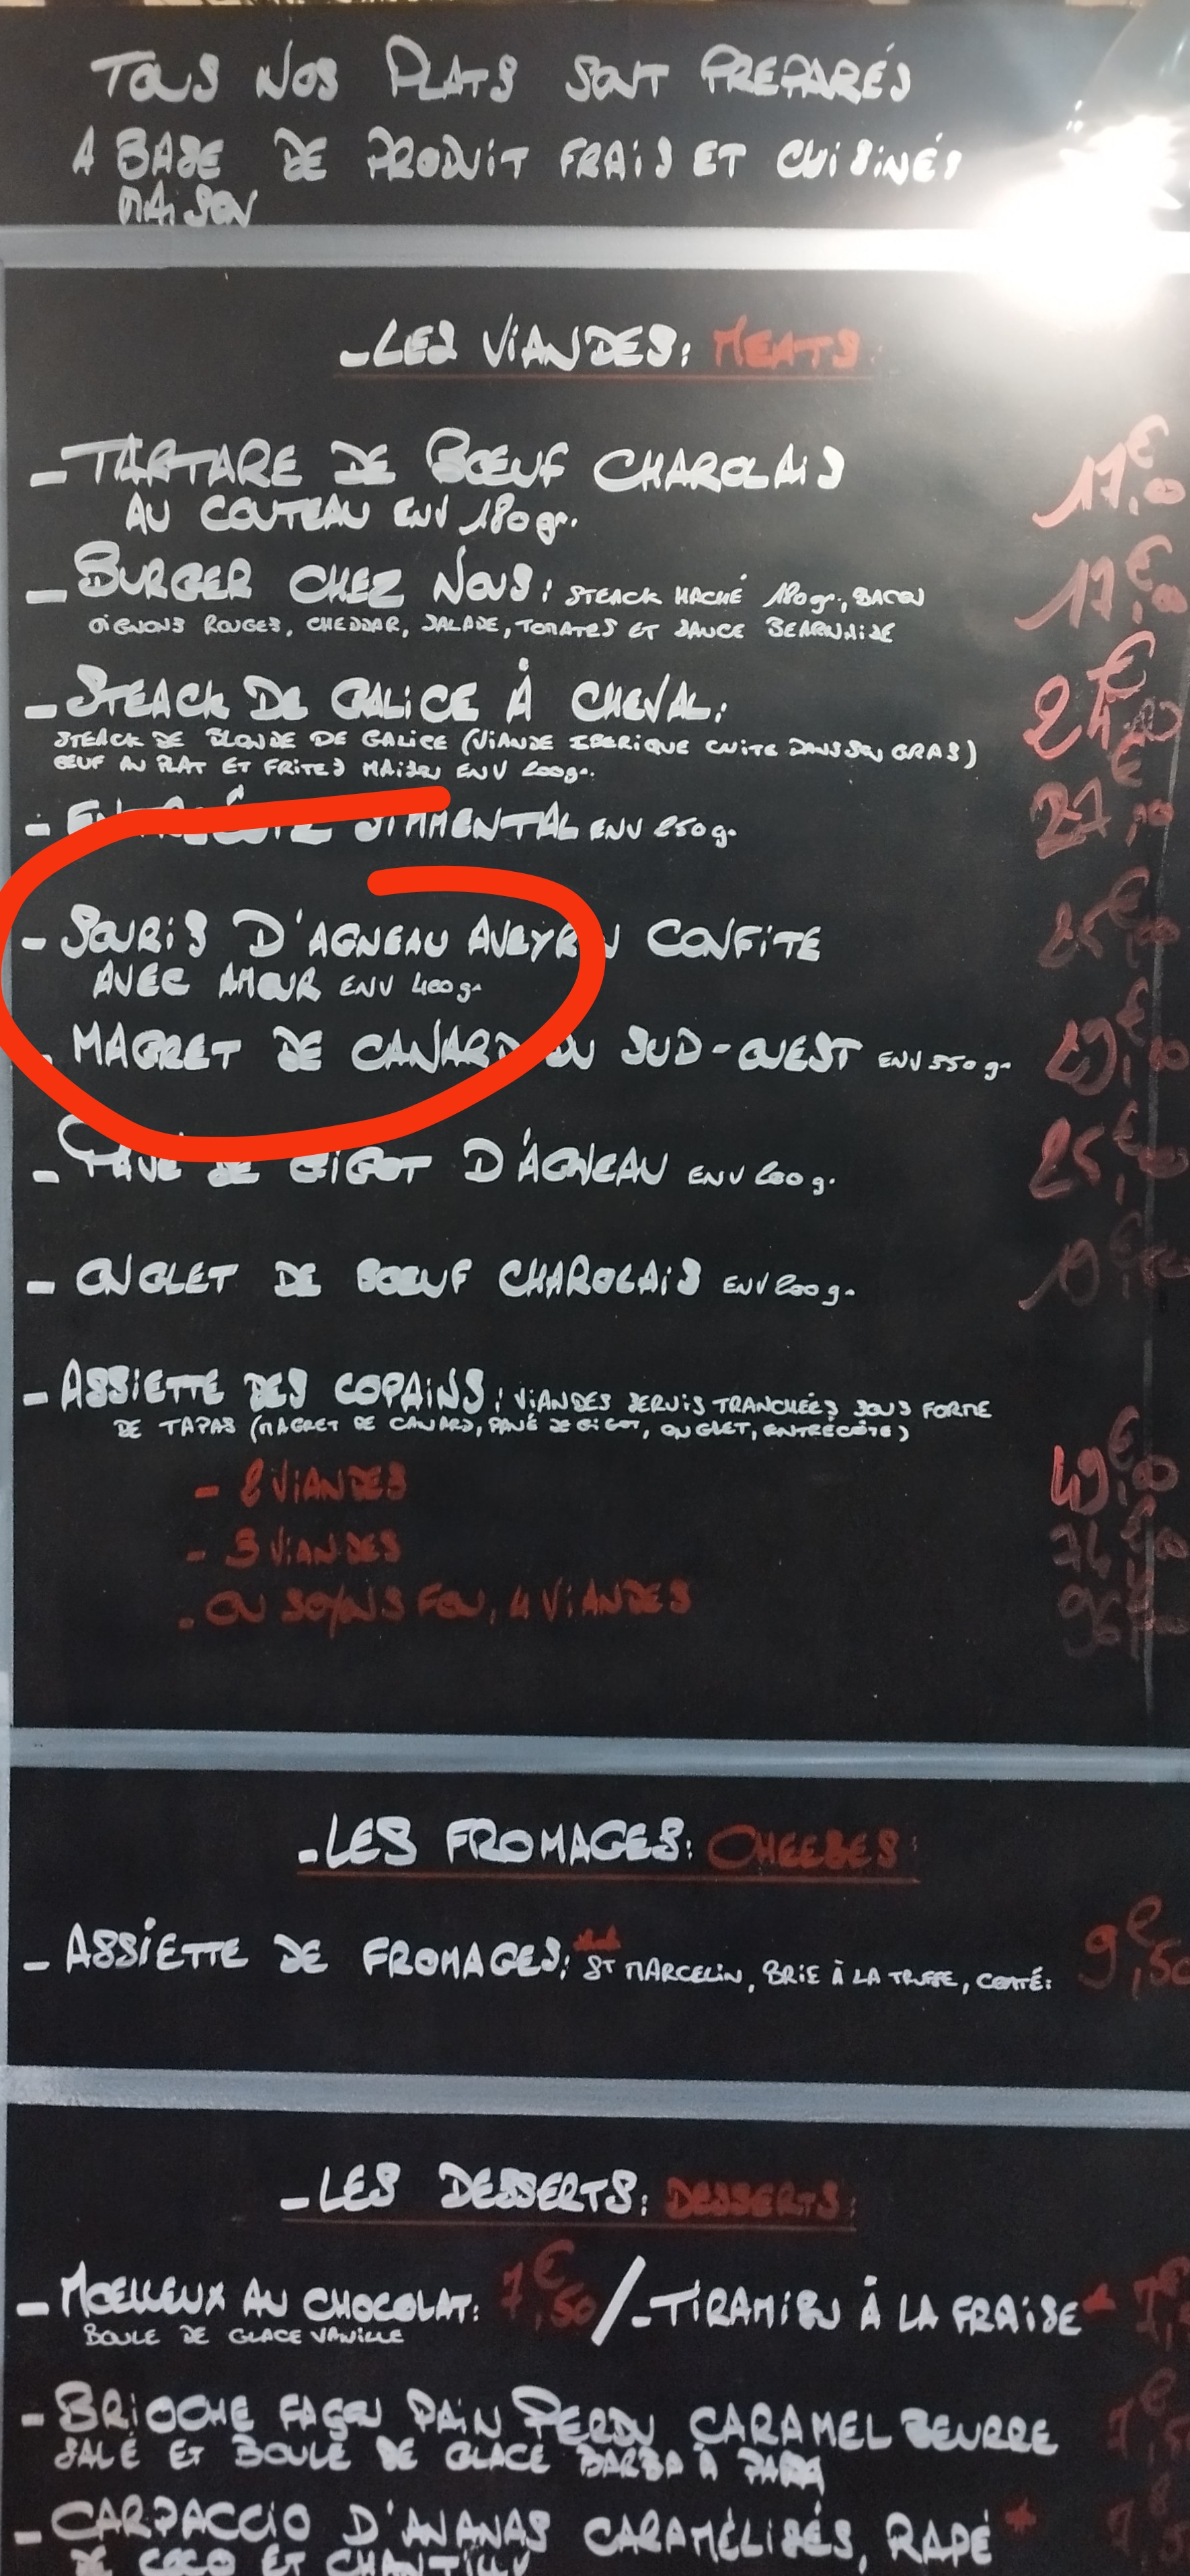 TOUS NOS PLATS SONT PREPARÉS
A BASE DE PRODUIT FRAIS ET CUISINÉS
MAISON
-LES VIANDES: MEATS:
-TARTARE DE BŒUF CHAROLAIS 17,00€
AU COUTEAU ENV 180gr.
-BURGER CHEZ NOUS: STEACK HACHÉ 180gr., BACON 17,00€
OIGNONS ROUGES, CHEDDAR, SALADE, TOMATES ET SAUCE BEARNAISE
-STEACK DE GALICE À CHEVAL:
STEACK DE BLONDE DE GALICE (VIANDE IBERIQUE CUITE DANS SON GRAS)
ŒUF AU PLAT ET FRITES MAISON ENV 200gr.
- ENTRECÔTE SIMMENTAL ENV 250g. 27,00€
- SOURIS D'AGNEAU AVEYRON CONFITE 25,00€
AVEC AMOUR ENV 400gr
- MAGRET DE CANARD DU SUD-OUEST ENV 350gr
- PAVÉ DE GIGOT D'AGNEAU ENV 200g. 25,00€
- ONGLET DE BŒUF CHAROLAIS ENV 200gr. 19,00€
- ASSIETTE DES COPAINS: VIANDES SERVIS TRANCHÉES SOUS FORME
DE TAPAS (MAGRET DE CANARD, PAVÉ DE GIGOT, ONGLET, ENTRECÔTE)
- 2 VIANDES 49,00€
- 3 VIANDES 74,00€
- OU SOYONS FOU, 4 VIANDES 96,00€
-LES FROMAGES: CHEESES:
- ASSIETTE DE FROMAGES: ST MARCELIN, BRIE À LA TRUFFE, COMTÉ: 9,50€
-LES DESSERTS: DESSERTS:
- MOELLEUX AU CHOCOLAT: 7,50€ /-TIRAMISU À LA FRAISE
BOULE DE GLACE VANILLE
- BRIOCHE FAÇON PAIN PERDU CARAMEL BEURRE
SALÉ ET BOULE DE GLACE BARBA À PAPA
- CARPACCIO D'ANANAS CARAMÉLISÉS, RAPÉ
DE COCO ET CHANTILLY